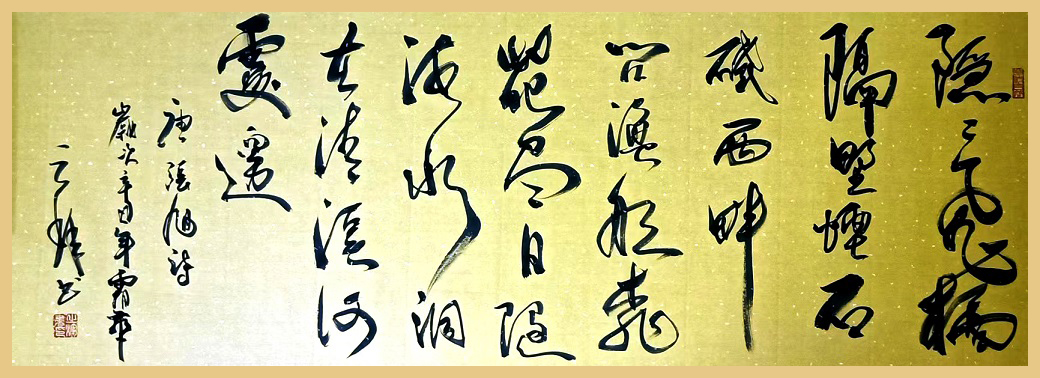 隱〻飛橋
隔野煙石
磯西畔
問漁船桃
花盡日隨
流水洞
在清溪何
處邊
唐張旭詩
歲次辛丑年霜華
云书